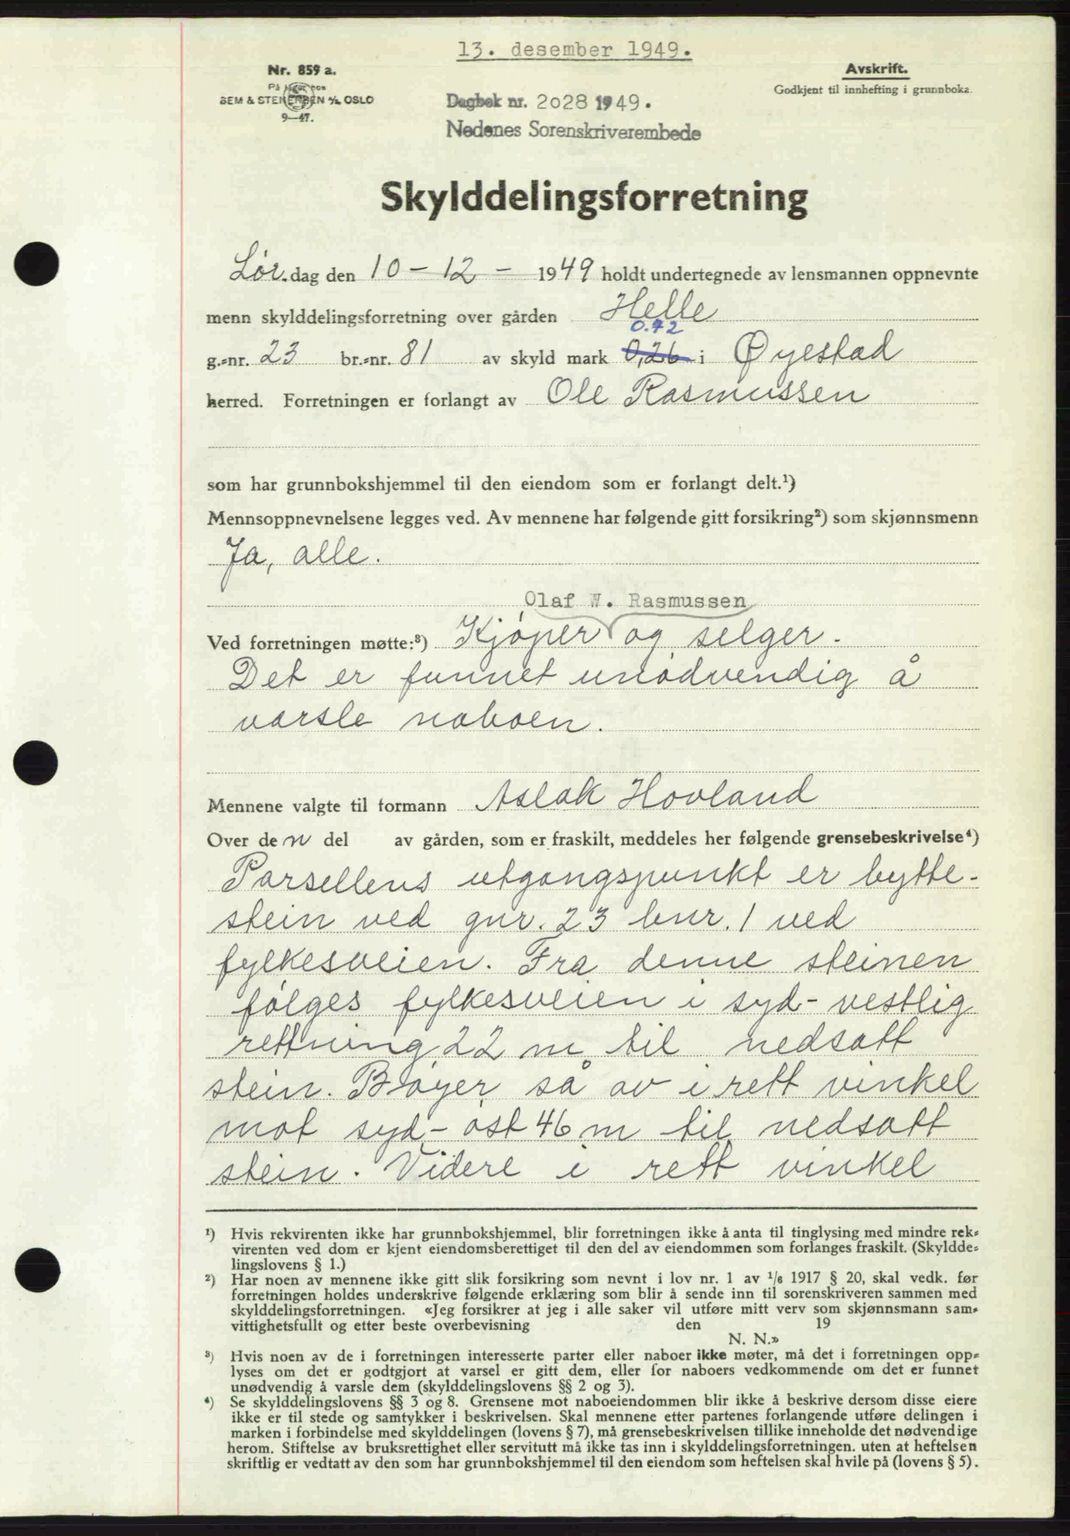 13. desember 1949.
Nr. 859 a.
På lager hos
SEM & STENERSEN A/S OSLO
9—47.
Avskrift.
Godkjent til innhefting i grunnboka.
Dagbok nr. 2028 1949.
Nedenes Sorenskriverembede
Skylddelingsforretning
Lør.dag den 10 - 12 - 1949 holdt undertegnede av lensmannen oppnevnte
menn skylddelingsforretning over gården Helle
0.72
g.-nr. 23 br.-nr. 81 av skyld mark 0,26 i Øyestad
herred. Forretningen er forlangt av Ole Rasmussen
som har grunnbokshjemmel til den eiendom som er forlangt delt.¹)
Mennsoppnevnelsene legges ved. Av mennene har følgende gitt forsikring²) som skjønnsmenn
Ja, alle.
Olaf W. Rasmussen
Ved forretningen møtte:³) Kjøper og selger.
Det er funnet unødvendig å
varsle naboen.
Mennene valgte til formann Aslak Hovland
Over den del av gården, som er fraskilt, meddeles her følgende grensebeskrivelse⁴)
Parsellens utgangspunkt er bytte-
stein ved gnr. 23 bnr. 1 ved
fylkesveien. Fra denne steinen
følges fylkesveien i syd-vestlig
rettning 22 m til nedsatt
stein. Bøyer så av i rett vinkel
mot syd-øst 46 m til nedsatt
stein. Videre i rett vinkel
¹) Hvis rekvirenten ikke har grunnbokshjemmel, blir forretningen ikke å anta til tinglysing med mindre rek-
virenten ved dom er kjent eiendomsberettiget til den del av eiendommen som forlanges fraskilt. (Skyldde-
lingslovens § 1.)
²) Har noen av mennene ikke gitt slik forsikring som nevnt i lov nr. 1 av 1/6 1917 § 20, skal vedk. før
forretningen holdes underskrive følgende erklæring som blir å sende inn til sorenskriveren sammen med
skylddelingsforretningen. «Jeg forsikrer at jeg i alle saker vil utføre mitt verv som skjønnsmann sam-
vittighetsfullt og etter beste overbevisning den 19
N. N.»
³) Hvis noen av de i forretningen interesserte parter eller naboer ikke møter, må det i forretningen opp-
lyses om det er godtgjort at varsel er gitt dem, eller for naboers vedkommende om det er funnet
unødvendig å varsle dem (skylddelingslovens §§ 2 og 3).
⁴) Se skylddelingslovens §§ 3 og 8. Grensene mot naboeiendommen blir ikke å beskrive dersom disse eiere
ikke er til stede og samtykker i beskrivelsen. Skal mennene etter partenes forlangende utføre delingen i
marken i forbindelse med skylddelingen (lovens § 7), må grensebeskrivelsen tillike inneholde det nødvendige
herom. Stiftelse av bruksrettighet eller servitutt må ikke tas inn i skylddelingsforretningen. uten at heftelsen
skriftlig er vedtatt av den som har grunnbokshjemmel til den eiendom som heftelsen skal hvile på (lovens § 5).